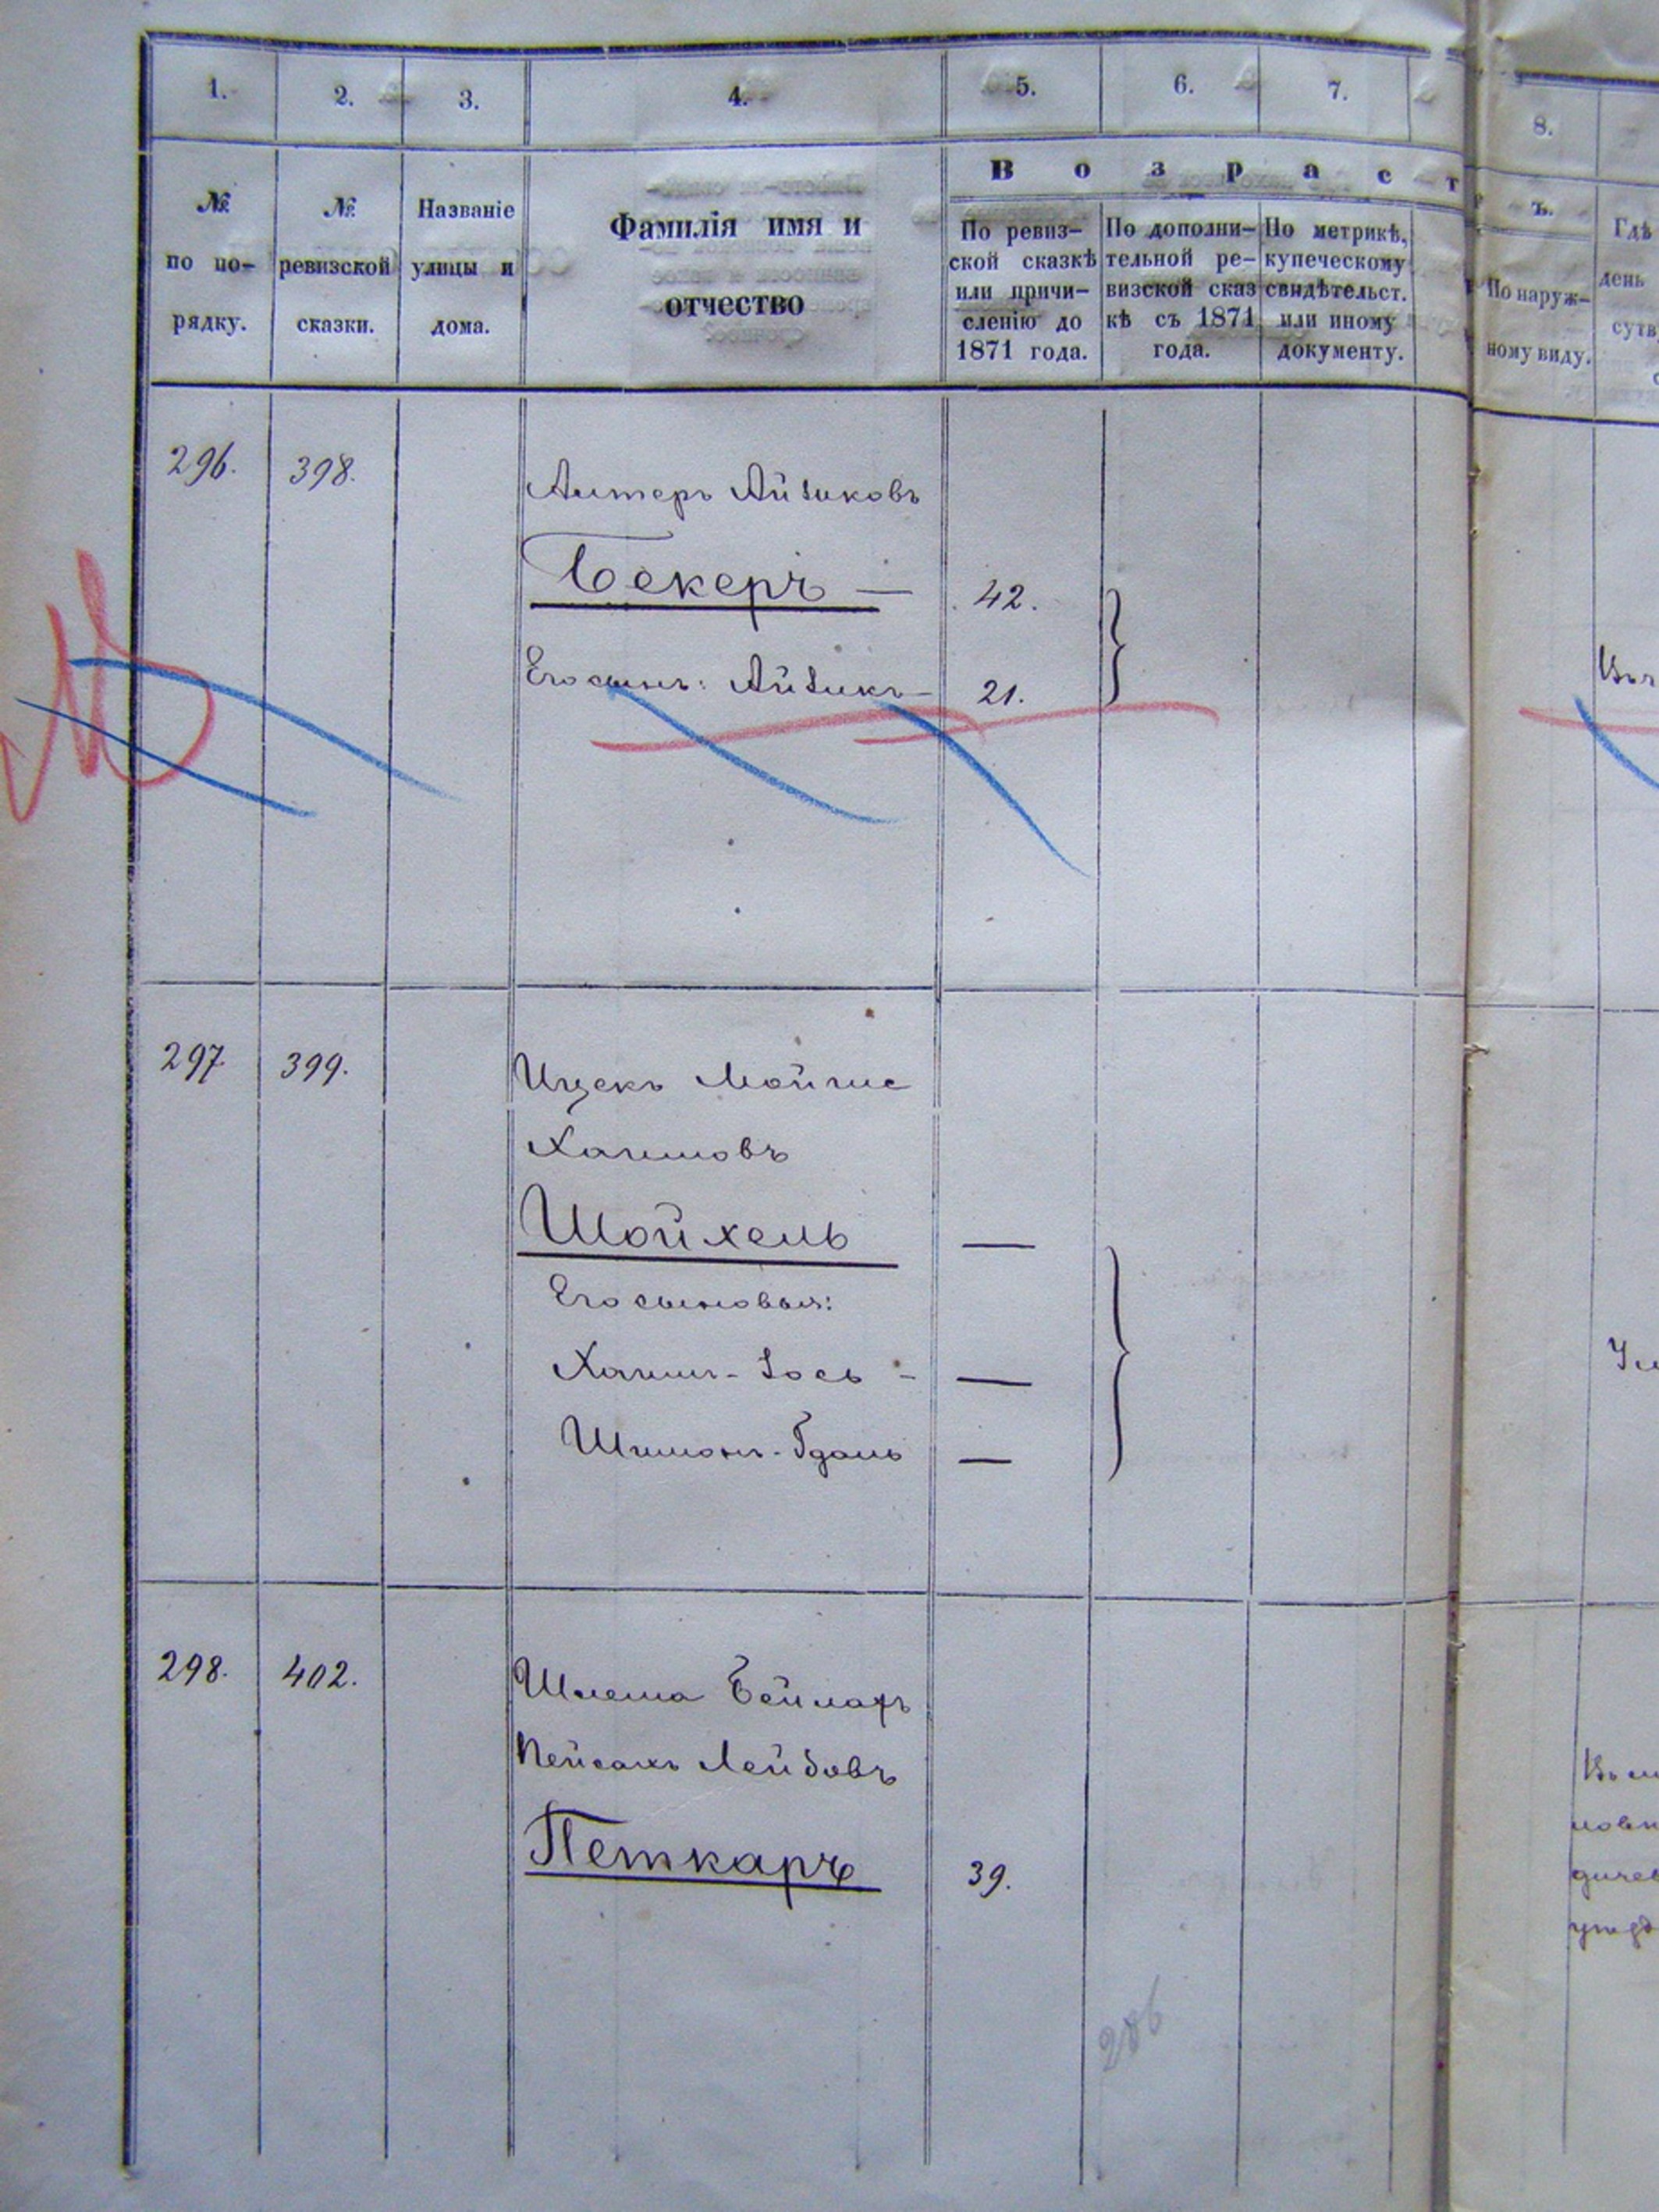 1. 2. 3. 4. 5. 6. 7. 8.
В о з р а с т ъ.
№ по по-
рядку.
№ ревизской
сказки.
Названіе
улицы и
дома.
Фамилія имя и
отчество
По ревиз-
ской сказкѣ
или причи-
сленію до
1871 года.
По дополни-
тельной ре-
визской сказ
кѣ съ 1871
года.
По метрикѣ,
купеческому
свидѣтельст.
или иному
документу.
По наруж-
ному виду.
Гдѣ
день
сутв
296. 398. Алтеръ Айзиковъ
Бекеръ — 42.
Его сынъ: Айзикъ — 21.
297. 399. Ицекъ Мойше
Хаимовъ
Шойхель —
Его сыновья:
Хаимъ-Зось - —
Шимонъ-Гдаль —
298. 402. Шлема Бейнахъ
Пейсахъ Лейбовъ
Петкаръ 39.
206